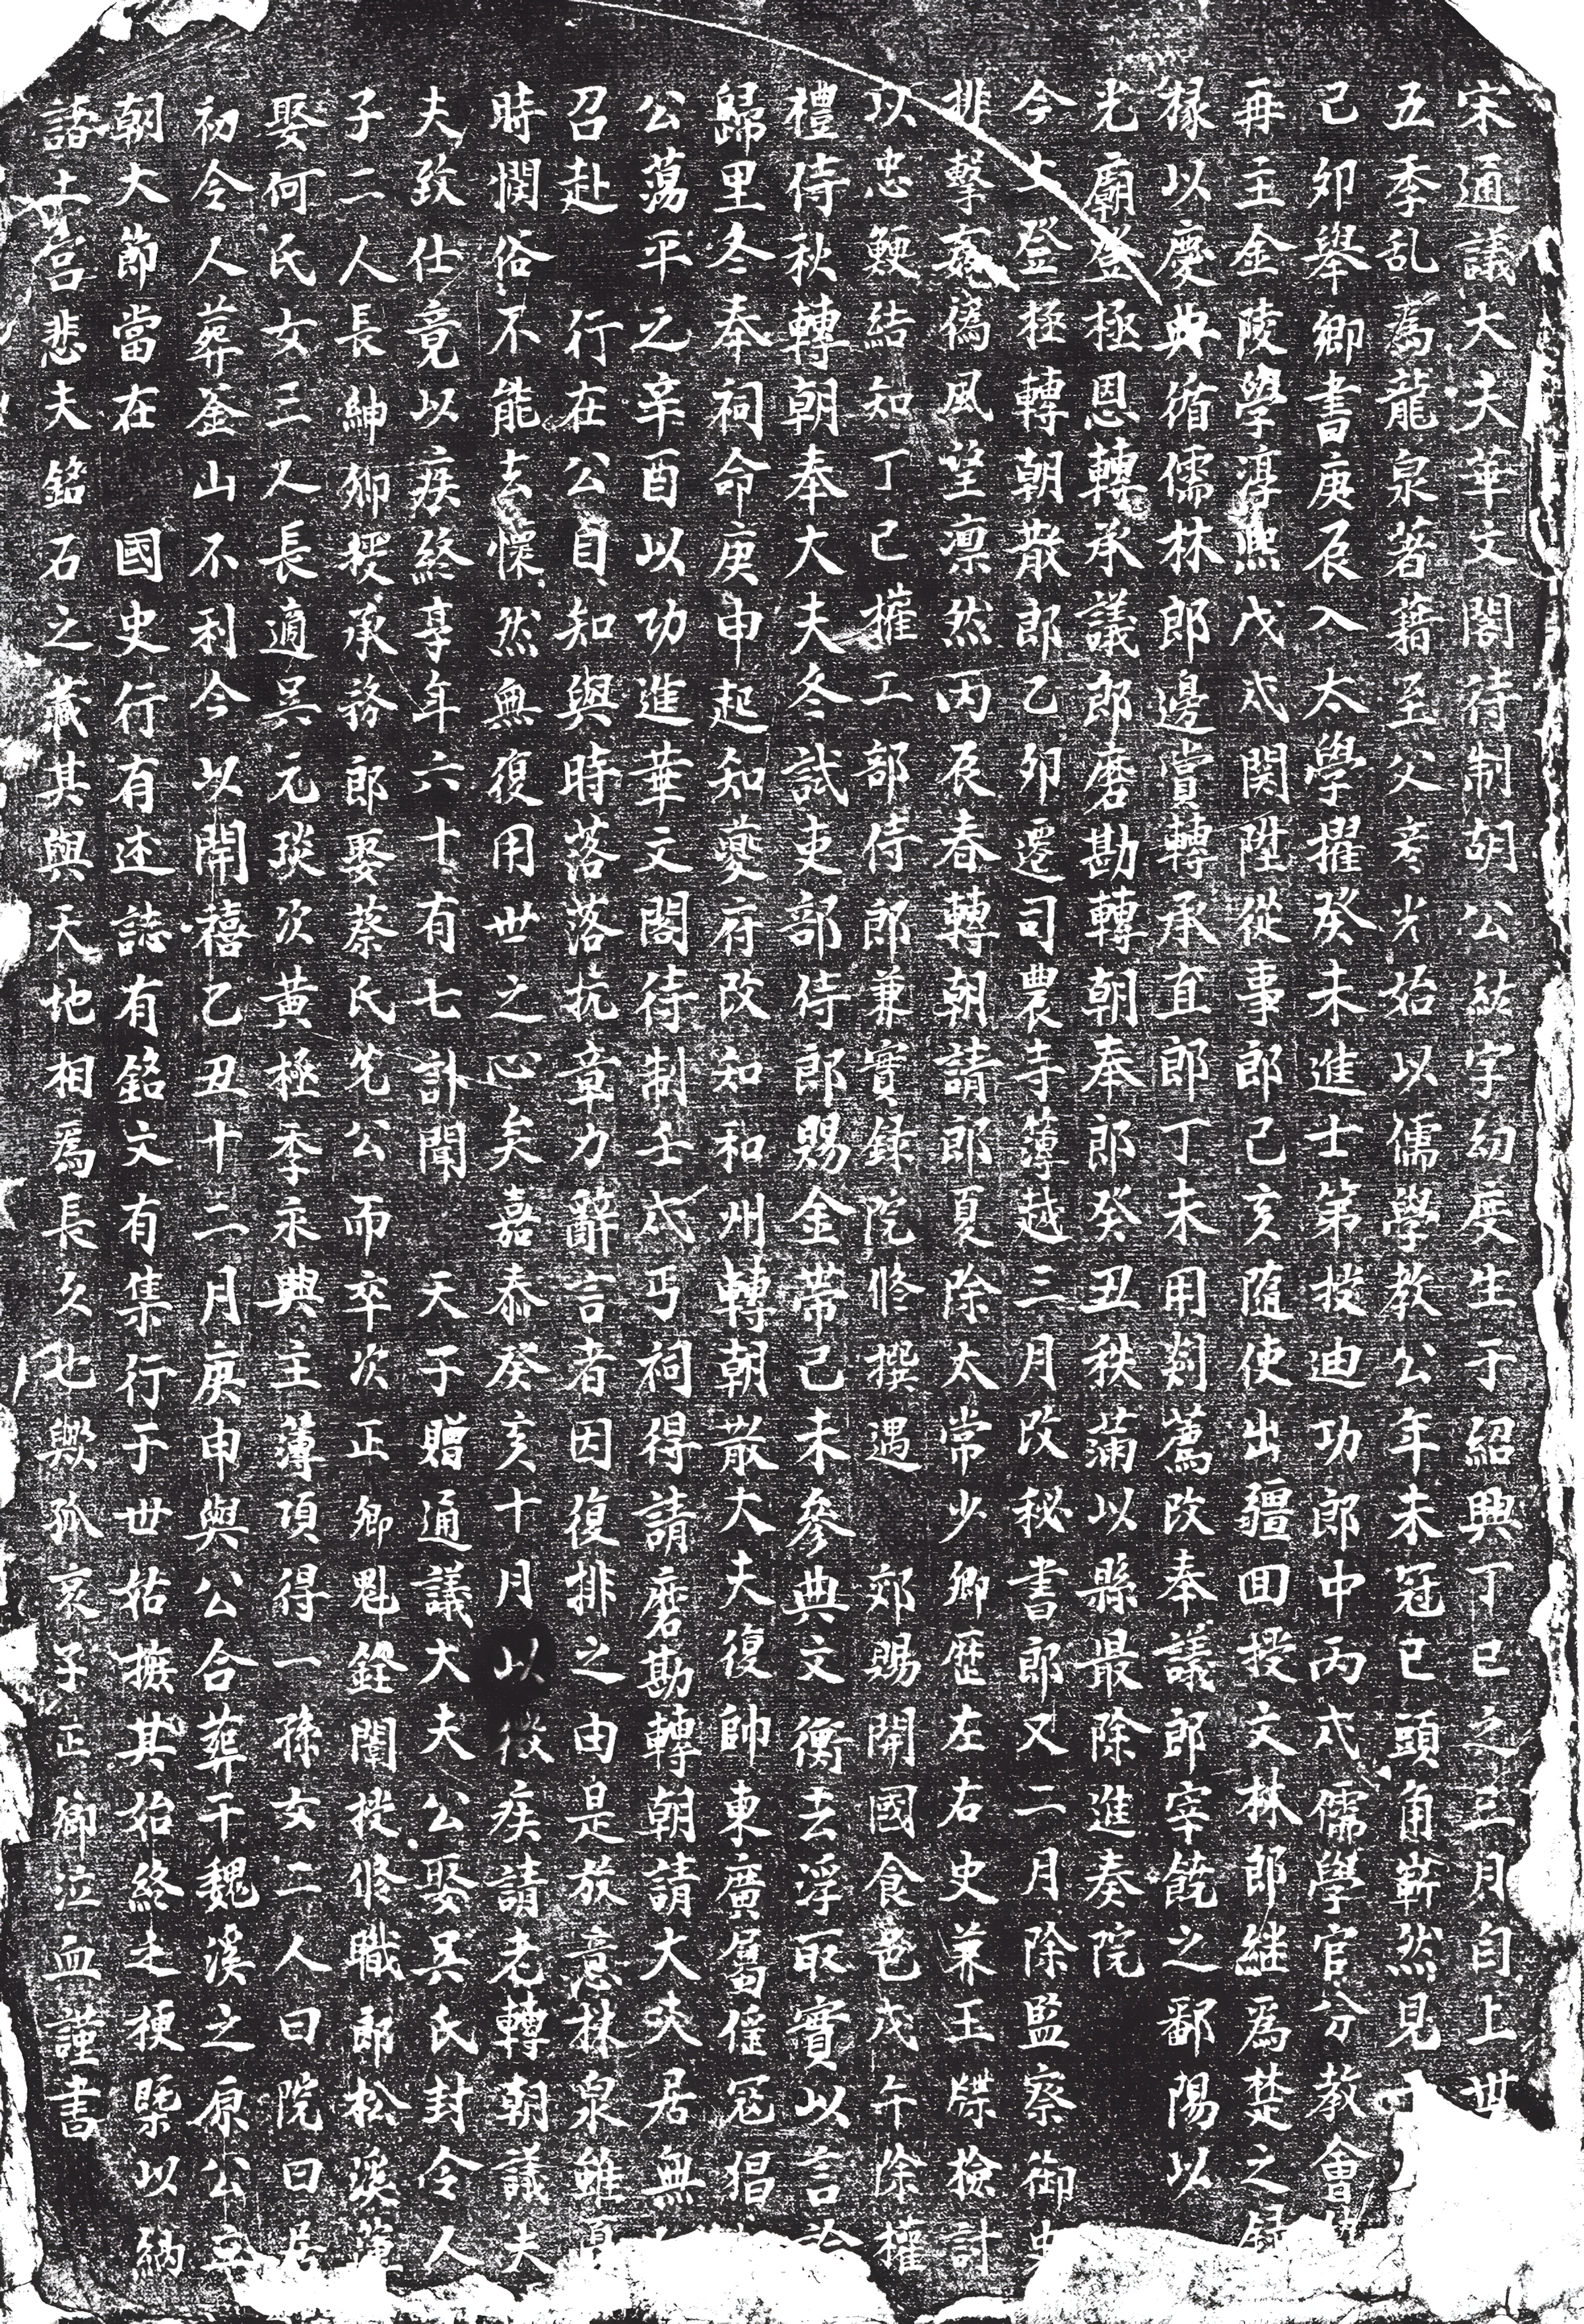 宋通議大夫華文閣待制胡公紘字幼度生于紹興丁巳之三月自上世
五季乱爲龍泉著藉至父彦光始以儒學教公年未冠已頭角嶄然見
己卯舉鄉書庚辰入太學擢癸未進士第授迪功郎中丙戌儒學官分教會
再主金陵學淳熙戊戌関陞從事郎己亥隨使出疆回授文林郎継爲楚之録
椽以慶典循儒林郎邊賞轉承直郎丁未用剡薦改奉議郎宰饒之鄱陽以
光廟登極恩轉承議郎磨勘轉朝奉郎癸丑秩蒲以縣最除進奏院
今上登極轉朝散郎乙卯遷司農寺簿越三月改秘書郎又二月除監察御史
排擊姦偽風望凛然丙辰春轉朝請郎夏除太常少卿歷左右史兼玉牒檢討
以忠鯁結知丁巳擢工部侍郎兼實録院修撰遇郊賜開國食邑戊午除權
禮侍秋轉朝奉大夫冬試吏部侍郎賜金帶己未參典文衡去浮取實以言論
歸里冬奉祠命庚申起知夔府改知和州轉朝散大夫復帥東廣屬徭冦猖
公蕩平之辛酉以功進華文閣待制壬戌丐祠得請磨勘轉朝請大夫居無
召赴行在公自知與時落落抗章力辭言者因復排之由是放意林泉雖
時憫俗不能去懷然無復用世之心矣嘉泰癸亥十月以微疾請老轉朝議大夫
夫致仕竟以疾終享年六十有七訃聞天子贈通議大夫公娶吴氏封令人
子二人長紳卿授承務郎娶蔡氏先公而卒次正卿魁銓闈授修職郎松溪簿
娶何氏女三人長適吴元琰次黄極季永興主薄項得一孫女二人曰院曰居
初令人葬釜山不利今以開禧乙丑十二月庚申與公合葬于魏溪之原公立
朝大節當在國史行有述誌有銘文有集行于世姑摭其始終之梗槩以納
諸士宫悲夫銘石之藏其與天地相爲長久也歟孤哀子正卿泣血謹書